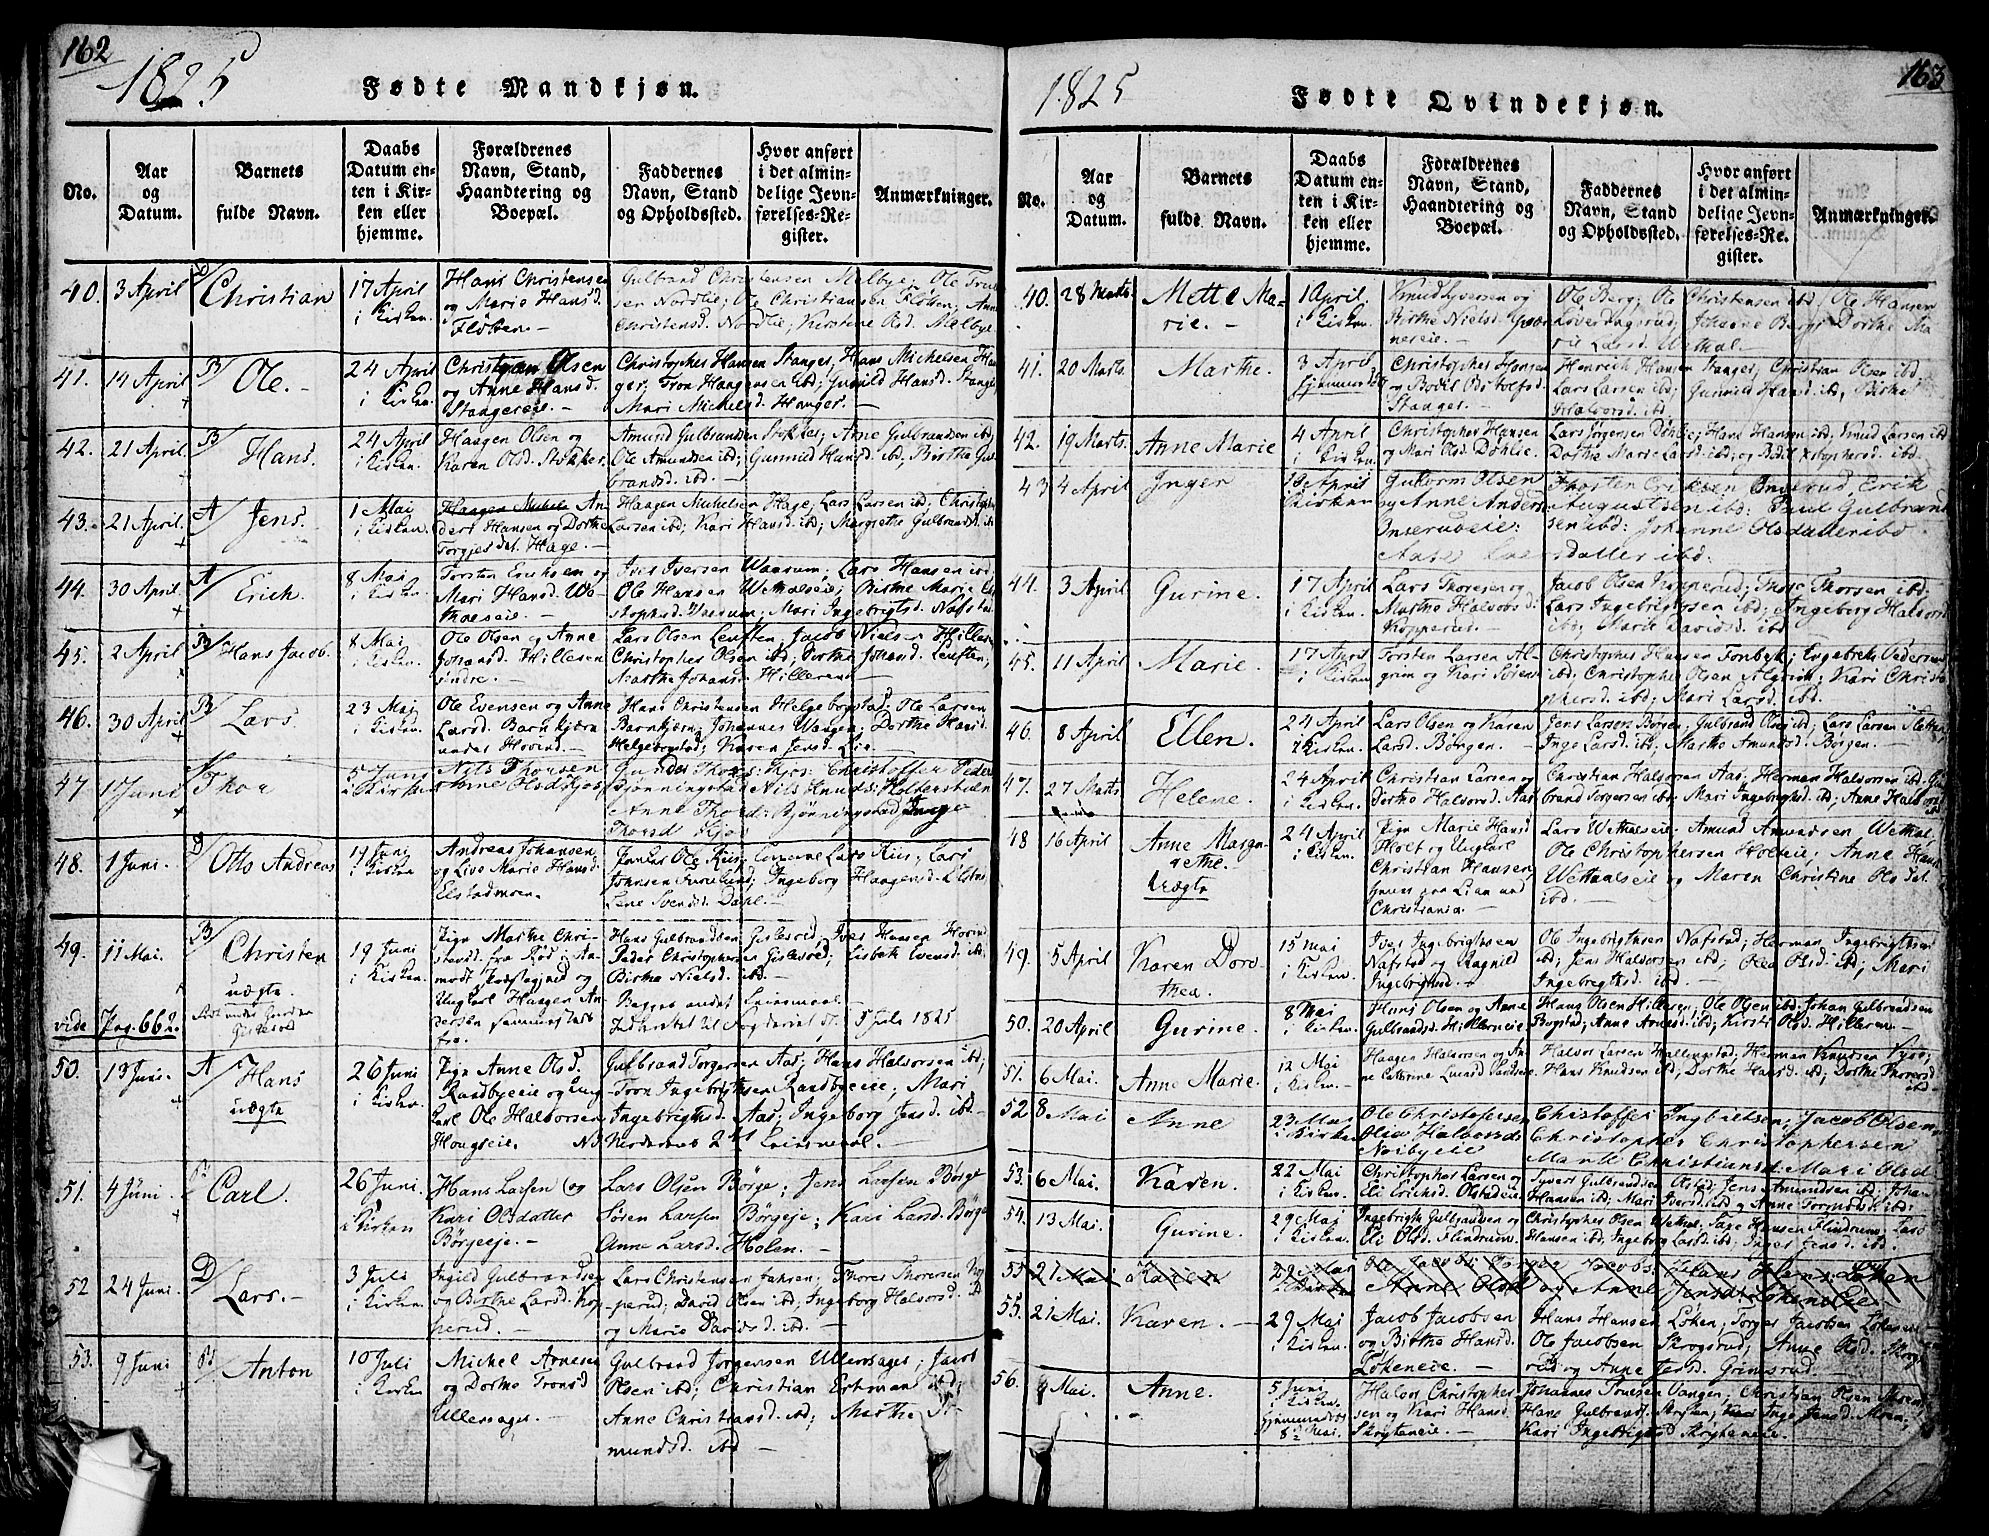 162
1825
Fødte Mandkjøn.
No.
Aar
og
Datum.
Barnets
fulde Navn.
Daabs
Datum en-
ten i Kir-
ken eller
hjemme.
Forældrenes
Navn, Stand,
Haandtering og
Boepæl.
Faddernes
Navn, Stand
og Opholdssted.
Hvor anført
i det almin-
delige Jevn-
førelses-Re-
gister.
Anmærkninger.
40. 3 April
Christian
17 April
i Kirken.
Hans Christensen
og Marie Hansd.
Floben. –
Gulbrand Christensen Melbye, Ole
Nordlie; Ole Christiansen Floben, Anne
Christensd. Nordlie; Kirstine Olsd. Melbye.
41. 14 April
B/ Ole. –
24 April
i Kirken.
Christian Olsen
og Anne Hansd.
Stangereie. –
Christopher Hansen Stanger, Hans Michelsen Han-
ger, Tron Haagensen ibd; Gunild Hansd. Stanger,
Mari Michelsd. Hanger. –
42. 21 April
B/ Hans.
24 April
i Kirken.
Haagen Olsen og
Karen Olsd. Stokker.
Amund Gulbrandsen Stokker; Arne Gulbrandsen ibd,
Ole Amundsen ibd; Gunnild Hansd. ibd, Birthe Gul-
brandsd. ibd. –
43. 21 April.
A/ Jens.
1 Mai
i Kirken.
An-
ders Hansen og Dorthe
Torgjersdat. Hage. –
Haagen Michelsen Hage, Lars Larsen ibd; Christopher
Larsen ibd; Kari Hansd. ibd; Margrethe Gulbrandsd. ibd
44. 30 April
A/ Erich.
8 Mai
i Kirken.
Torsten Erichsen og
Mari Hansd.
Iver Iversen Waarum; Lars Hansen ibd;
Ole Hansen Wethalseie; Birthe Marie Chri-
stophsd. Vaarum; Mari Ingebrigtsd. Nafstad
45. 2 April
B/ Hans Jacob.
8 Mai
i Kirken.
Ole Olsen og Anne
Johansd. Hilleren
indre. –
Lars Olsen Leuften, Jacob Nielsen Hilleren
Christopher Olsen ibd; Dorthe Johansd. Leuften;
Marthe Johansd. Hilleren –
46. 30 April
B/ Lars.
23 Mai
i Kirken.
Ole Evensen og Anne
Larsd. Barnkjern
under Hovind. –
Hans Christensen Helgebogstad. Ole Larsen
Barnkjern; Johannes Waagen; Dorthe Hansd.
Helgebogstad; Karen Jensd. Lie –
47 1 Juni
Thor
5 Juni
i Kirken
Nils Thorsen
Anne Olsd. Kjos
Gunder Thors: Kjos: Christoffer Peders
Bjønningstad Nils Knuds: Holtenstulen
Anne Thorsd: Bjønningstad Inge
Thorsd Kjos
48. 1 Juni.
Otto Andreas
19 Juni
i Kirken
Andreas Johansen
og Live Marie Hansd.
Elstadmoen. –
Ole Kiis, Lars Kiis, Lars
Johnsen Furulund; Ingeborg Haagensd. Elstad,
Lene Svendsd. Dahl. –
49. 11 Mai.
vide Pag. 662.
B/ Christen
uægte.
19 Juni
i Kirken
Pige Marthe Chri-
stensd. fra Rød i
og
Ungkarl Haagen An-
dersen
Hans Gulbrandsen Gislerud, Iver Hansen Hovin
Peder Christophersen Gislerud; Lisbeth Evensd. ibd;
Birthe Nielsd. ibd. –
Begges andet Leiermaal. –
Indberettet til Fogderiet d. 5 Julii 1825
50. 19 Juni.
A/ Hans
uægte
26 Juni
i Kirken.
Pige Anne Olsd.
Randbyeeie og Ung-
karl Ole Halvorsen
Haugseie.
Gulbrand Torgersen Aas; Hans Halvorsen ibd;
Tron Ingebrigtsen Randbyeeie; Mari
Ingebrigtsd. Aas; Ingeborg Jensd. ibd. –
Moderens 2det Leiermaal. –
51. 4 Juni
Carl.
26 Juni.
i Kirken
Hans Larsen og
Kari Olsdatter
Børgeeje. –
Lars Olsen Børge; Jens Larsen Børge
Søren Larsen Børgeje; Kari Larsd. Børge
Anne Larsd. Holen. –
52 24 Juni.
D/ Lars. –
3 Juli
i Kirken.
Ingild Gulbrandsen
og Birthe Larsd. Kop-
perud. –
Lars Christensen Jahren; Thores Thoresen Kop-
perud; David Olsen ibd; Ingeborg Halvorsd. ibd
og Marie Davidsd. ibd. –
53. 9 Juni
Anton
10 Juli
i Kirken
Michel Arnesen
og Dorthe Tronsd
Ullensager. –
Gulbrand Jørgensen Ullensager; Jacob
Olsen ibd; Christian Ertman ibd;
Anne Christiansd. ibd; Marthe
mundsd. ibd –
163
1825
Fødte Qvindekjøn.
No.
Aar
og
Datum.
Barnets
fulde Navn.
Daabs
Datum en-
ten i Kir-
ken eller
hjemme.
Forældrenes
Navn, Stand,
Haandtering og
Boepæl.
Faddernes
Navn, Stand
og Opholdssted.
Hvor anført
i det almin-
delige Jevn-
førelses-Re-
gister.
Anmærkninger.
40. 28 Marts.
Mette Ma-
rie. –
1 April.
i Kirken.
Knud Iversen og
Birthe Nielsd.
Ole Berg; Ole Christensen ibd; Ole Hansen
Løverdagsrud; Johanne Berg; Dorthe Ma-
rie Larsd. Wethal. –
41. 20 Marts.
Marthe.
3 April
hjemmedøbt
Christopher Hansen
og Bodil
Stanger. –
Henrich Hansen Stanger; Christian Olsen ibd
Lars Larsen ibd; Gunnild Hansd. ibd, Birthe
Halvorsd. ibd.
42. 19 Marts.
Anne Marie
4 April
i Kirken.
Christopher Hansen
og Mari Olsd. Døhlie.
Lars Jørgensen Døhlie; Hans Hansen ibd; Knud Larsen ibd
Dorthe Marie Larsd. ibd; og Bodil ibd.
43 4 April
Inger
i Kirken
Gutorm Olsen
og Anne Andersd
Thosten Eriksen Onsrud Erik
Augustsen ibd: Poul Gulbrand-
sen ibd: Johanne Olsdatter ibd
datter ibd.
44. 3 April
Gurine.
17 April
i Kirken.
Lars Thoresen og
Marthe Halvorsd.
Kopperud. –
Jacob Olsen Kopperud; Thore Thorsen ibd.
Lars Ingebrigtsen ibd; Ingeborg Halvorsd
ibd; Marie Davidsd. ibd
45. 11 April
Marie.
17 April
i Kirken
Torsten Larsen Al-
grim og Kari Sørensd
Christopher Hansen Tonbek; Engebret Pedersen
ibd; Christopher Olsen Algrim; Kari Christo-
phersd. ibd; Mari Larsd. ibd.
46. 8 April
Ellen.
24 April
i Kirken.
Lars Olsen og Karen
Larsd. Børgen. –
Jens Larsen Børgen; Gulbrand Olsen ibd; Lars Larsen
Inge Larsd. ibd; Marthe Amundsd. Børgen. –
47. 27 Marts
Helene.
24 April
i Kirken.
Christian Larsen og
Dorthe Halvorsd. Aas
Christian Halvorsen Aas. Herman Halvorsen ibd. Gul-
brand Torgersen ibd; Mari Ingebrigtsd. ibd; Anne Halvorsd
48 16 April
Anne Margre-
the.
Uægte
24 April
i Kirken.
Pige Marie Hansd
Holt og Ungkarl
Christian Hansen
fra Lian ved
Christiania. –
Lars Wethalseie; Amund Amundsen Wethal;
Ole Christophersen Holteie; Anne Hansd
Wethalseie og Maren Christine Olsdat.
ibd. –
49. 5 April
Karen Doro-
thea.
15 Mai
i Kirken.
Iver Ingebrigtsen
Nafstad og Ragnild
Ingebrigtsd. –
Ole Ingebrigtsen Nafstad; Herman Ingebrigtsen
ibd; Jens Halvorsen ibd; Olea Olsd. ibd; Mari
Ingebrigtsd. ibd.
50. 20 April
Gurine.
8 Mai
i Kirken.
Hans Olsen og Anne
Gulbrandsd. Hillereneie
Hans Olsen Hilleren; Ole Olsen ibd. Johan Gulbrandsen
Bogstad; Anne Arnesd. ibd; Kirsti Olsd. Hilleren. –
51. 6 Mai.
Anne Marie.
12 Mai
i Kirken.
Haagen Halvorsen og An-
ne Cathrine
Halvor Larsen Hallingstad; Herman Knudsen
Hans Knudsen ibd, Dorthe Hansd. ibd; Dorthe Thoresd
ibd –
52 8 Mai
Anne
23 Mai
i Kirken
Ole Christofersen
Olia Halvorsd
Noibyeie
Christoffer Ingbretsen; Jacob Olsen
Christopher Christophersen
Marth Christiansd: Mari Olsd
53. 6 Mai.
Karen.
22 Mai
i Kirken.
Christopher Larsen og
Eli Erichsd. Olstadeie
Syver Gulbrandsen Olstad, Jens Amundsen ibd, Johan
Hansen ibd; Mari Iversd. ibd og Anne ibd.
54. 13 Mai.
Gurine.
29 Mai
i Kirken.
Ingebrigt Gulbrandsen og
Eli Olsd. Flindrum.
Christopher Olsen Wethal, Tage Hansen Flindrum, Lars
Hansen ibd, Ingeborg Larsd. ibd, Inger Jensd. ibd.
55 21 Mai
Karen
29 Mai
i Kirken
Ole Jacobs: Torger Jacobs: Hans Hans: Løken
Anne Olsd og Anne Jensd: Løkeneie
55. 21 Mai.
Karen. –
29 Mai
i Kirken.
Jacob Jacobsen
og Birthe Hansd.
Løkeneie. –
Hans Hansen Løken; Torger Jacobsen Løkeneie
Ole Jacobsen Skogsrud; Anne Olsd. Skogs-
rud og Anne Jensd. Grimsrud.
56. 4 Mai.
Anne.
5 Juni
i Kirken.
hjemmedøbt
8de Mai.
Halvor Christopher-
sen og Kari Hansd.
Skrytaneie. –
Johannes Truesen Vangen; Christian Olsen
Hans Gulbrandsen Inge Jensd. Moen;
Kari Ingebrigtsd